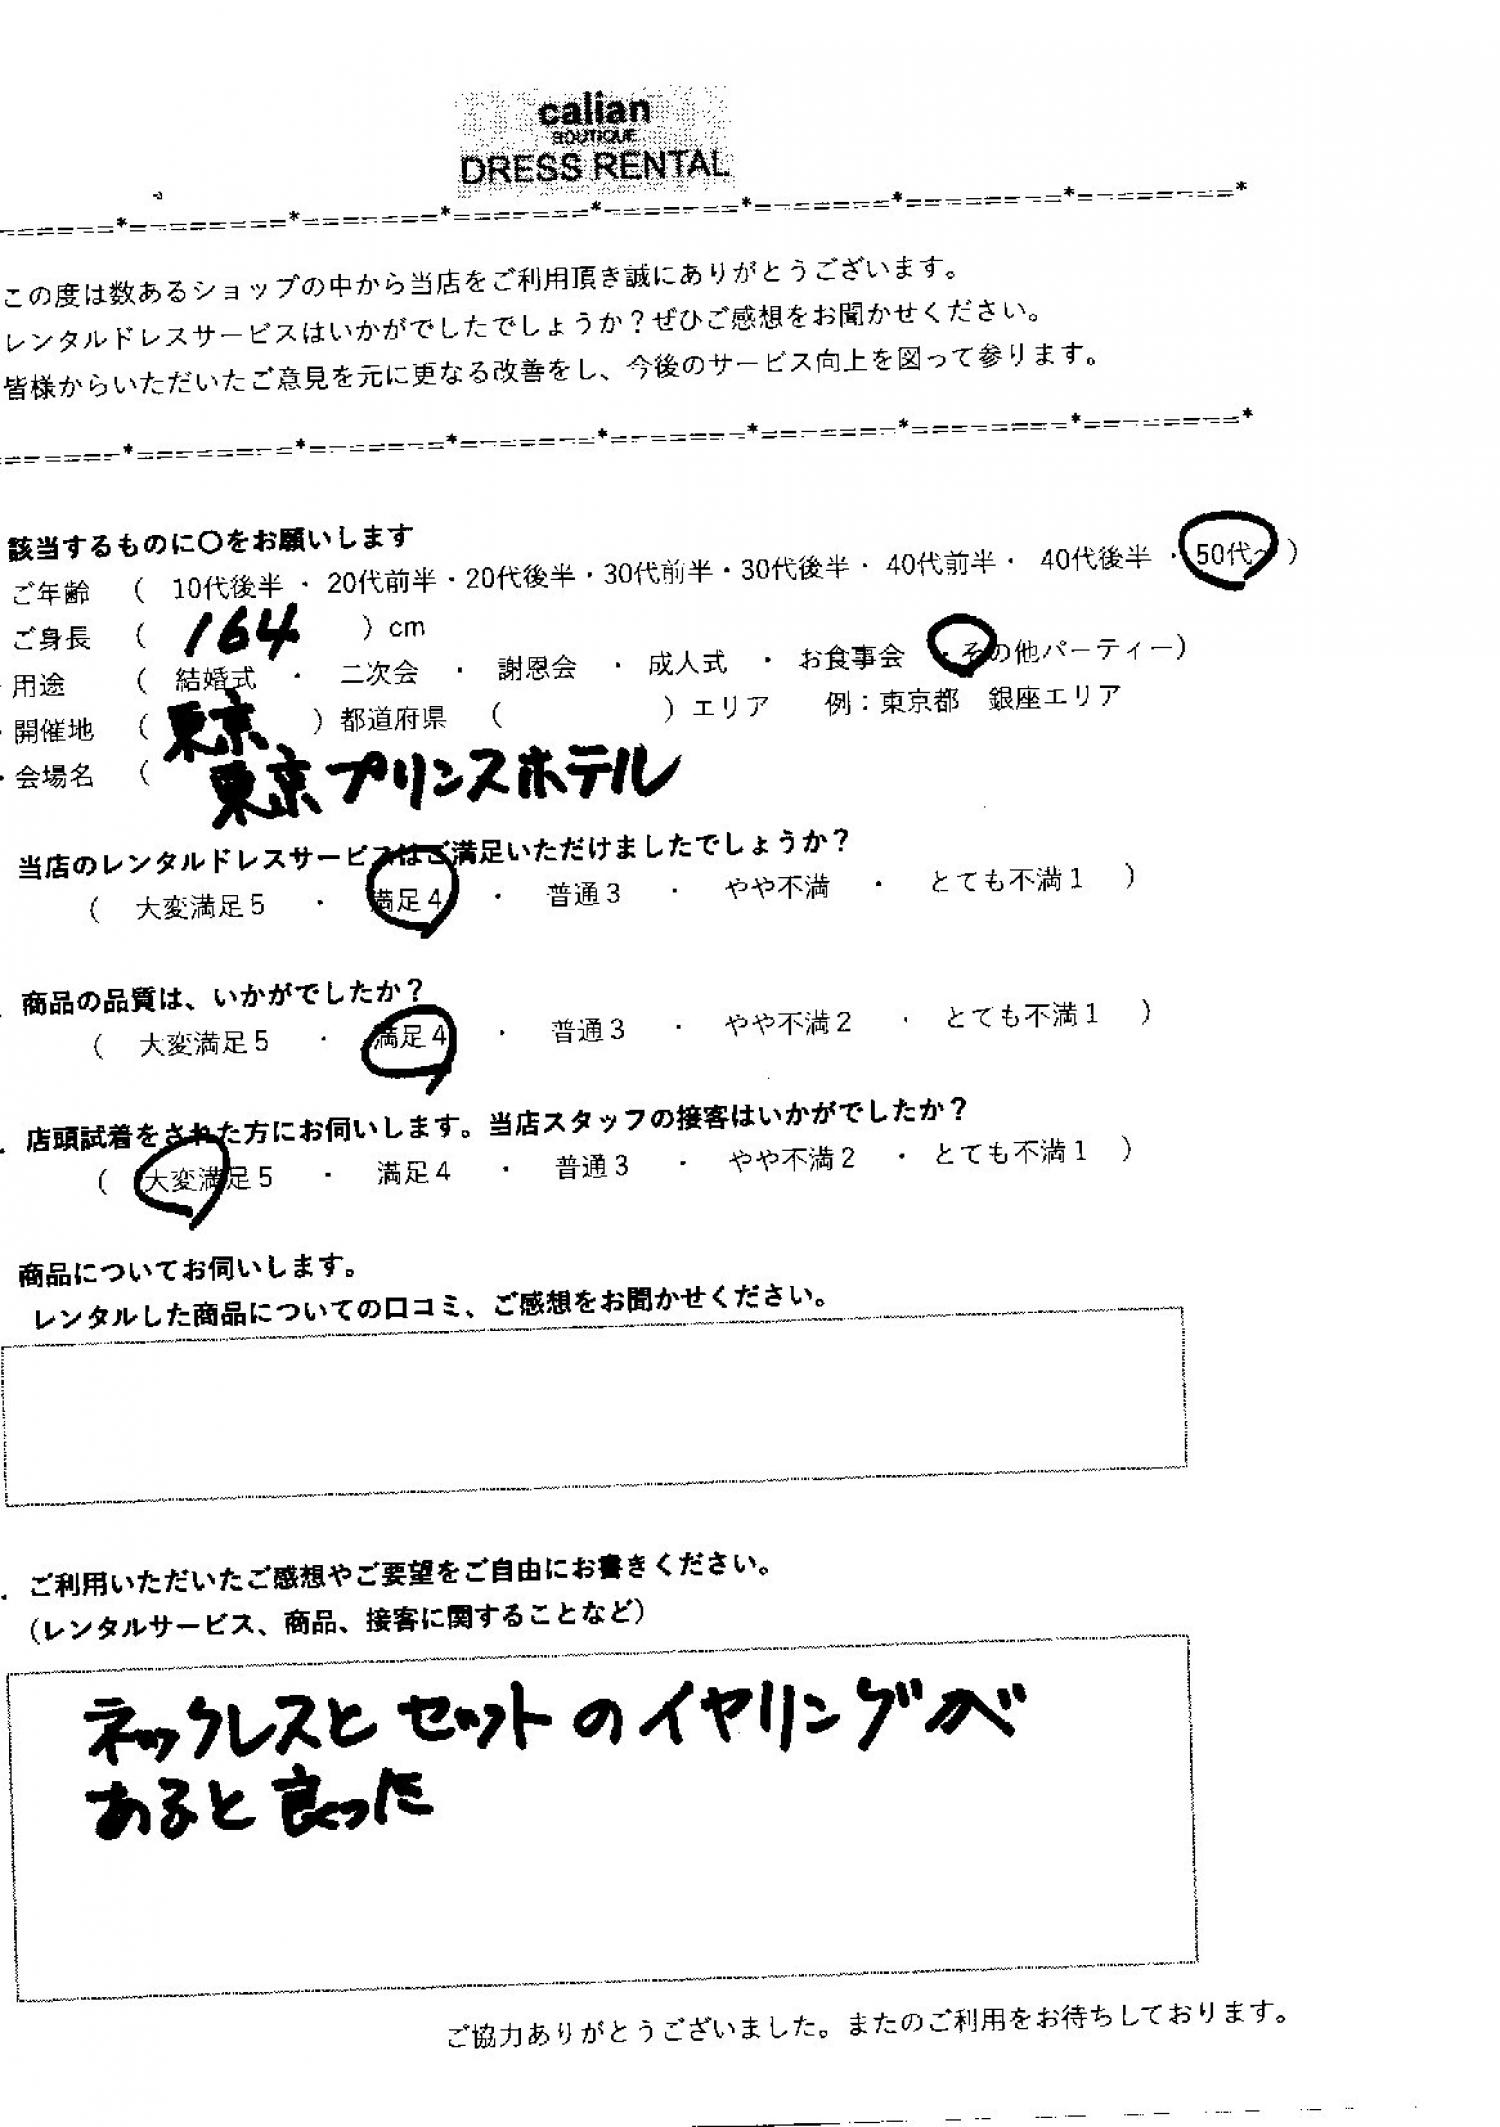 calian
BOUTIQUE
DRESS RENTAL
======*========*=======*=======*=======*=======*========*========*
この度は数あるショップの中から当店をご利用頂き誠にありがとうございます。
レンタルドレスサービスはいかがでしたでしょうか？ぜひご感想をお聞かせください。
皆様からいただいたご意見を元に更なる改善をし、今後のサービス向上を図って参ります。
=======*========*=======*=======*=======*=======*========*========*
該当するものに〇をお願いします
ご年齢 （ 10代後半 ・ 20代前半・20代後半・30代前半・30代後半・ 40代前半・ 40代後半 ・ 50代~ ）
ご身長 （ 164 ）cm
・用途 （ 結婚式 ・ 二次会 ・ 謝恩会 ・ 成人式 ・ お食事会 ・その他パーティー）
・開催地 （ 東京 ）都道府県 （ ）エリア 例：東京都 銀座エリア
・会場名 （ 東京プリンスホテル
当店のレンタルドレスサービスはご満足いただけましたでしょうか？
（ 大変満足５ ・ 満足４ ・ 普通３ ・ やや不満 ・ とても不満１ ）
. 商品の品質は、いかがでしたか？
（ 大変満足５ ・ 満足４ ・ 普通３ ・ やや不満２ ・ とても不満１ ）
. 店頭試着をされた方にお伺いします。当店スタッフの接客はいかがでしたか？
（ 大変満足５ ・ 満足４ ・ 普通３ ・ やや不満２ ・ とても不満１ ）
商品についてお伺いします。
レンタルした商品についての口コミ、ご感想をお聞かせください。
. ご利用いただいたご感想やご要望をご自由にお書きください。
（レンタルサービス、商品、接客に関することなど）
ネックレスと セットのイヤリングが
あると良った
ご協力ありがとうございました。またのご利用をお待ちしております。